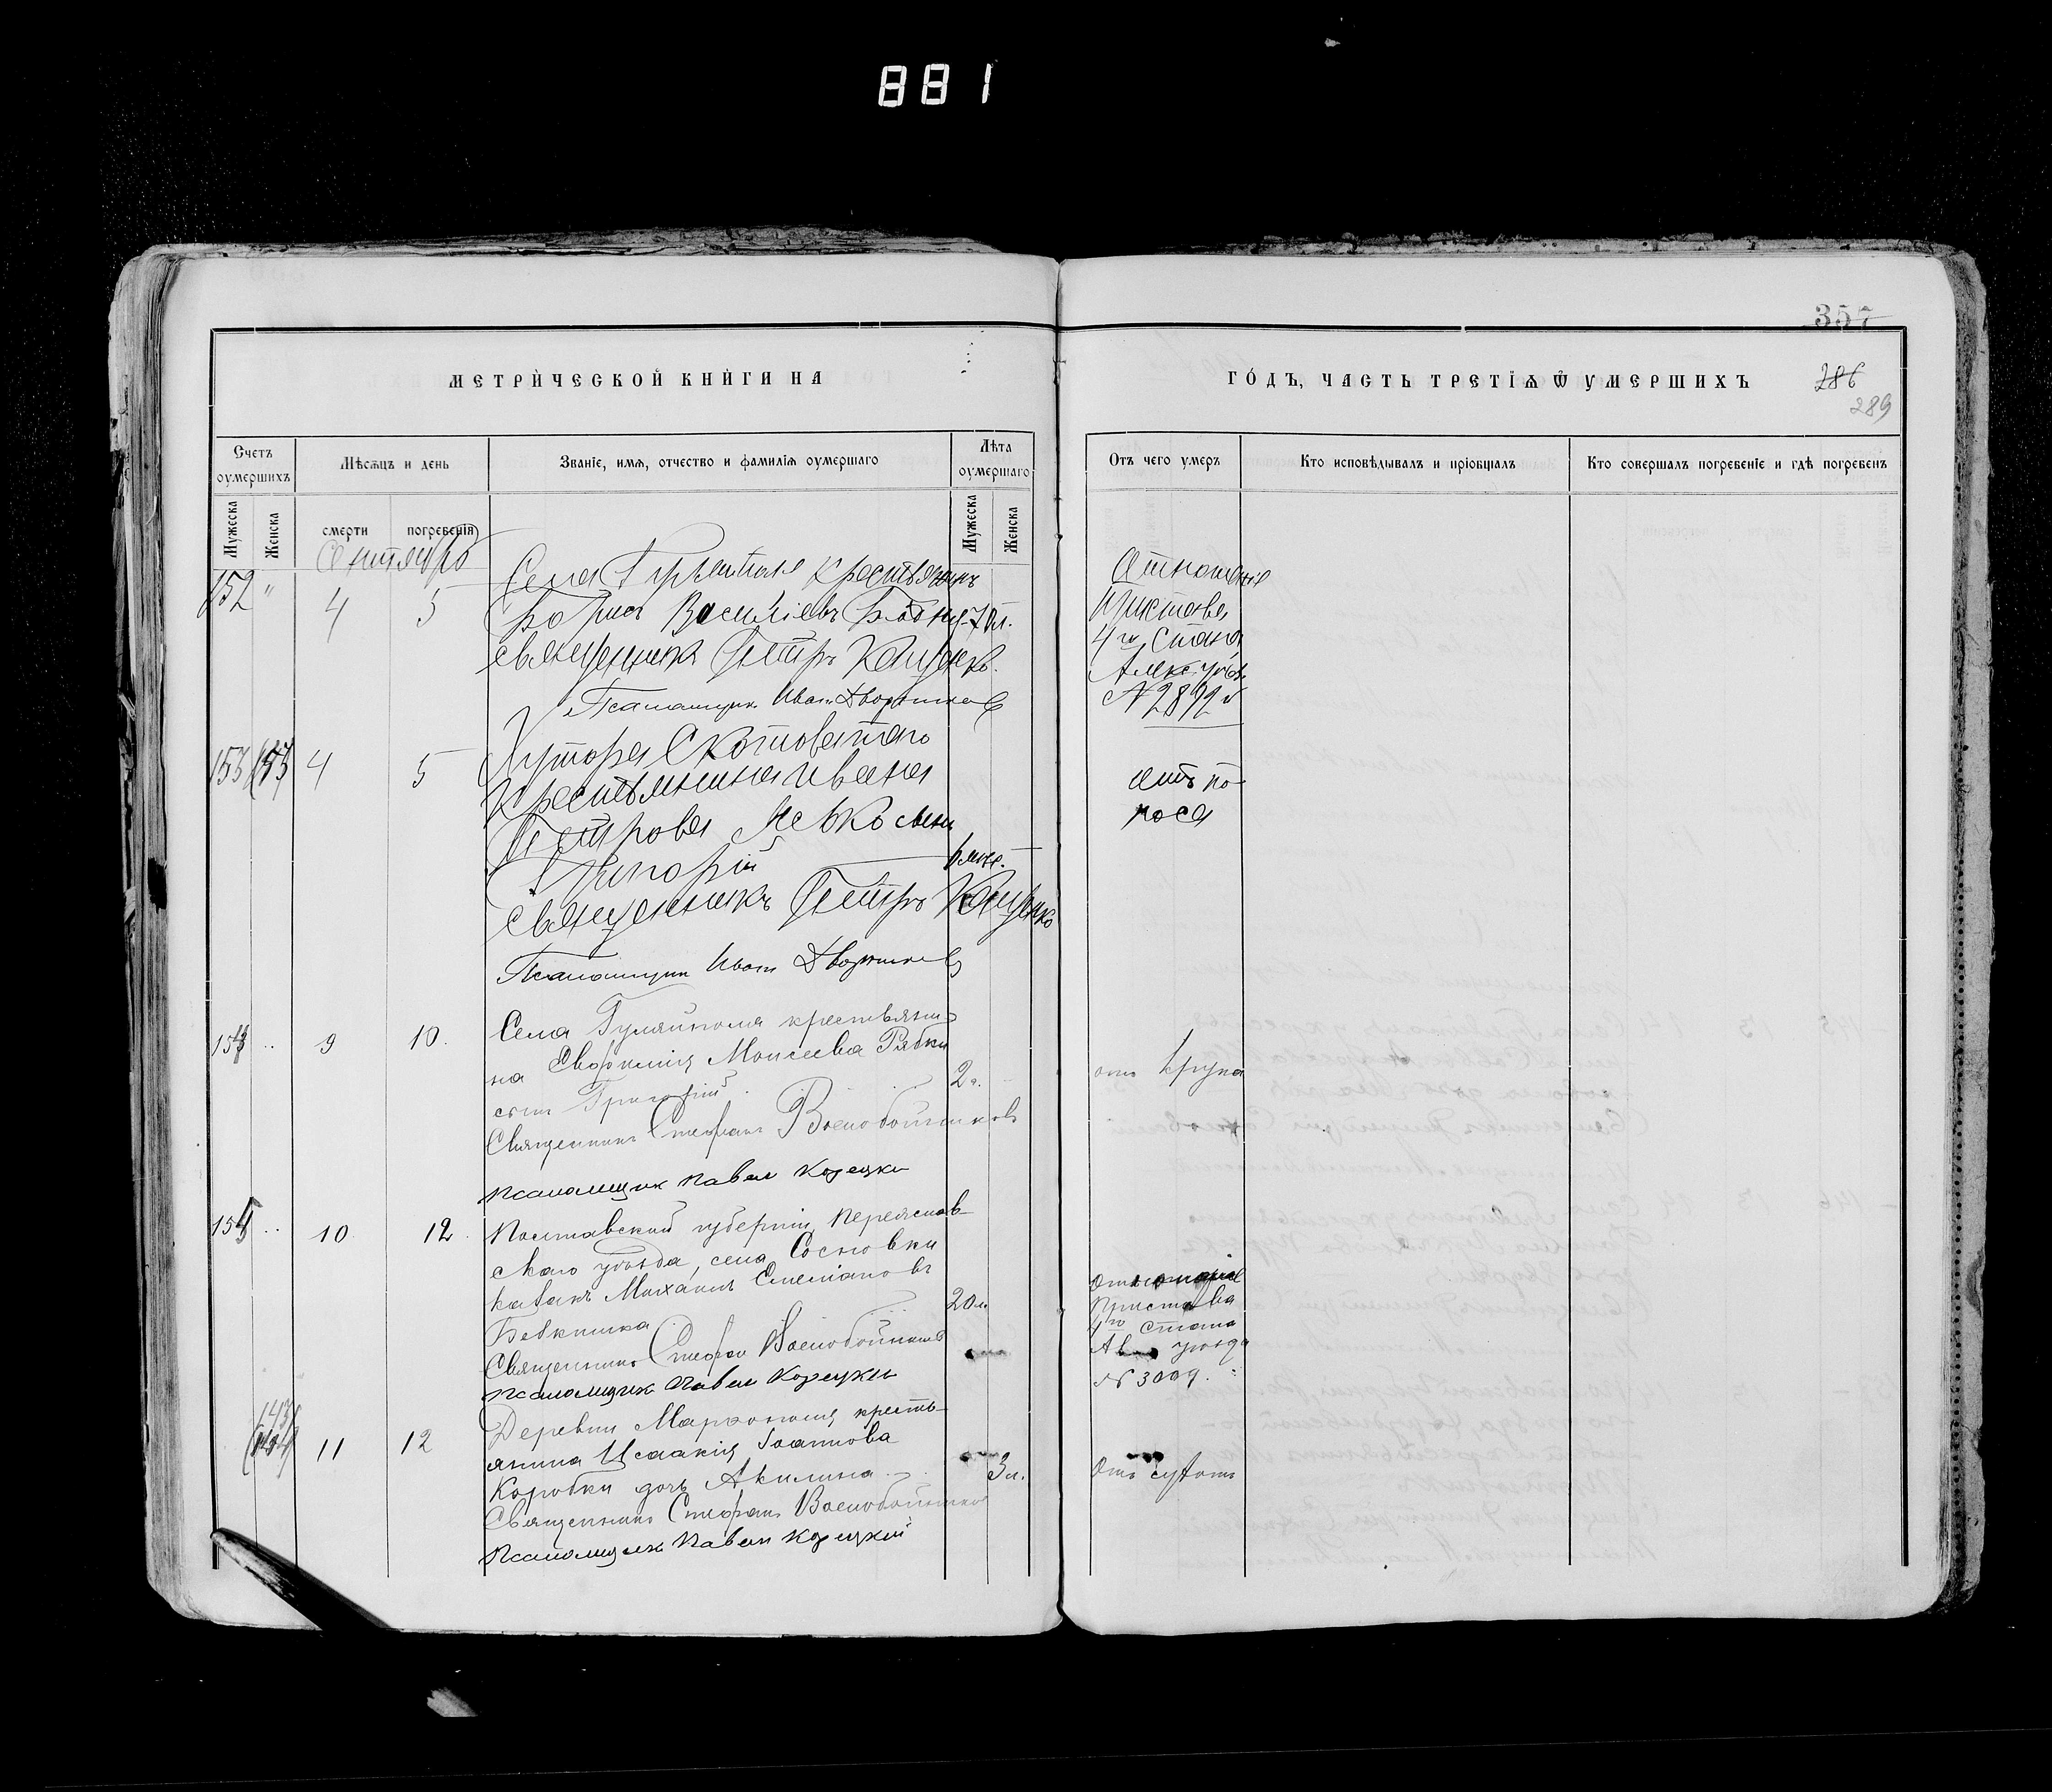 881
357
МЕТРИЧЕСКОЙ КНИГИ НА
ГОДЪ, ЧАСТЬ ТРЕТІѦ Ѿ УМЕРШИХЪ
286
289
Счетъ оумершихъ
Мѣсѧцъ и день
Званіе, имѧ, отчество и фамиліѧ оумершаго
Лѣта оумершаго
Отъ чего умеръ
Кто исповѣдывалъ и пріобщалъ
Кто совершалъ погребеніе и гдѣ погребенъ
Мужеска
Женска
смерти
погребеніѧ
Мужеска
Женска
Сентябрь
152 " 4 5
Села Гуляйполя крестьянинъ
Борисъ Васильевъ
священникъ Петръ Кащенко.
Псаломщик Иван
Отношеніе
Пристава
4го Стана
Алекс. уѣз.
№ 2892й
153 4 5
Хутора Скотоватаго
Крестьянина Ивана
Петрова сынъ
Григорій
6 мѣс.
Священникъ Петръ Кащенко
Псаломщик Иван
отъ по-
носа
154 .. 9 10.
Села Гуляйполя крестьяни-
на Евфимія Моисеева Рябки
сынъ Григорій
2 г.
Священникъ Стефанъ Воскобойниковъ
псаломщик Павел Корецки
отъ крупа
155 .. 10 12.
Полтавской губерніи, Переяслав-
скаго уѣзда, села Сосновки
казакъ Михаилъ Емеліановъ
20 л.
Священникъ Стефан Воскобойниковъ
псаломщик Павел Корецкий
Пристава
4го стана
уѣзда
№ 3009.
143 11 12
Деревни Марфополя кресть-
янина Исаакія Іоаннова
Коробки дочь Акилина
3 л.
Священникъ Стефанъ Воскобойников
псаломщик Павел Корецкий